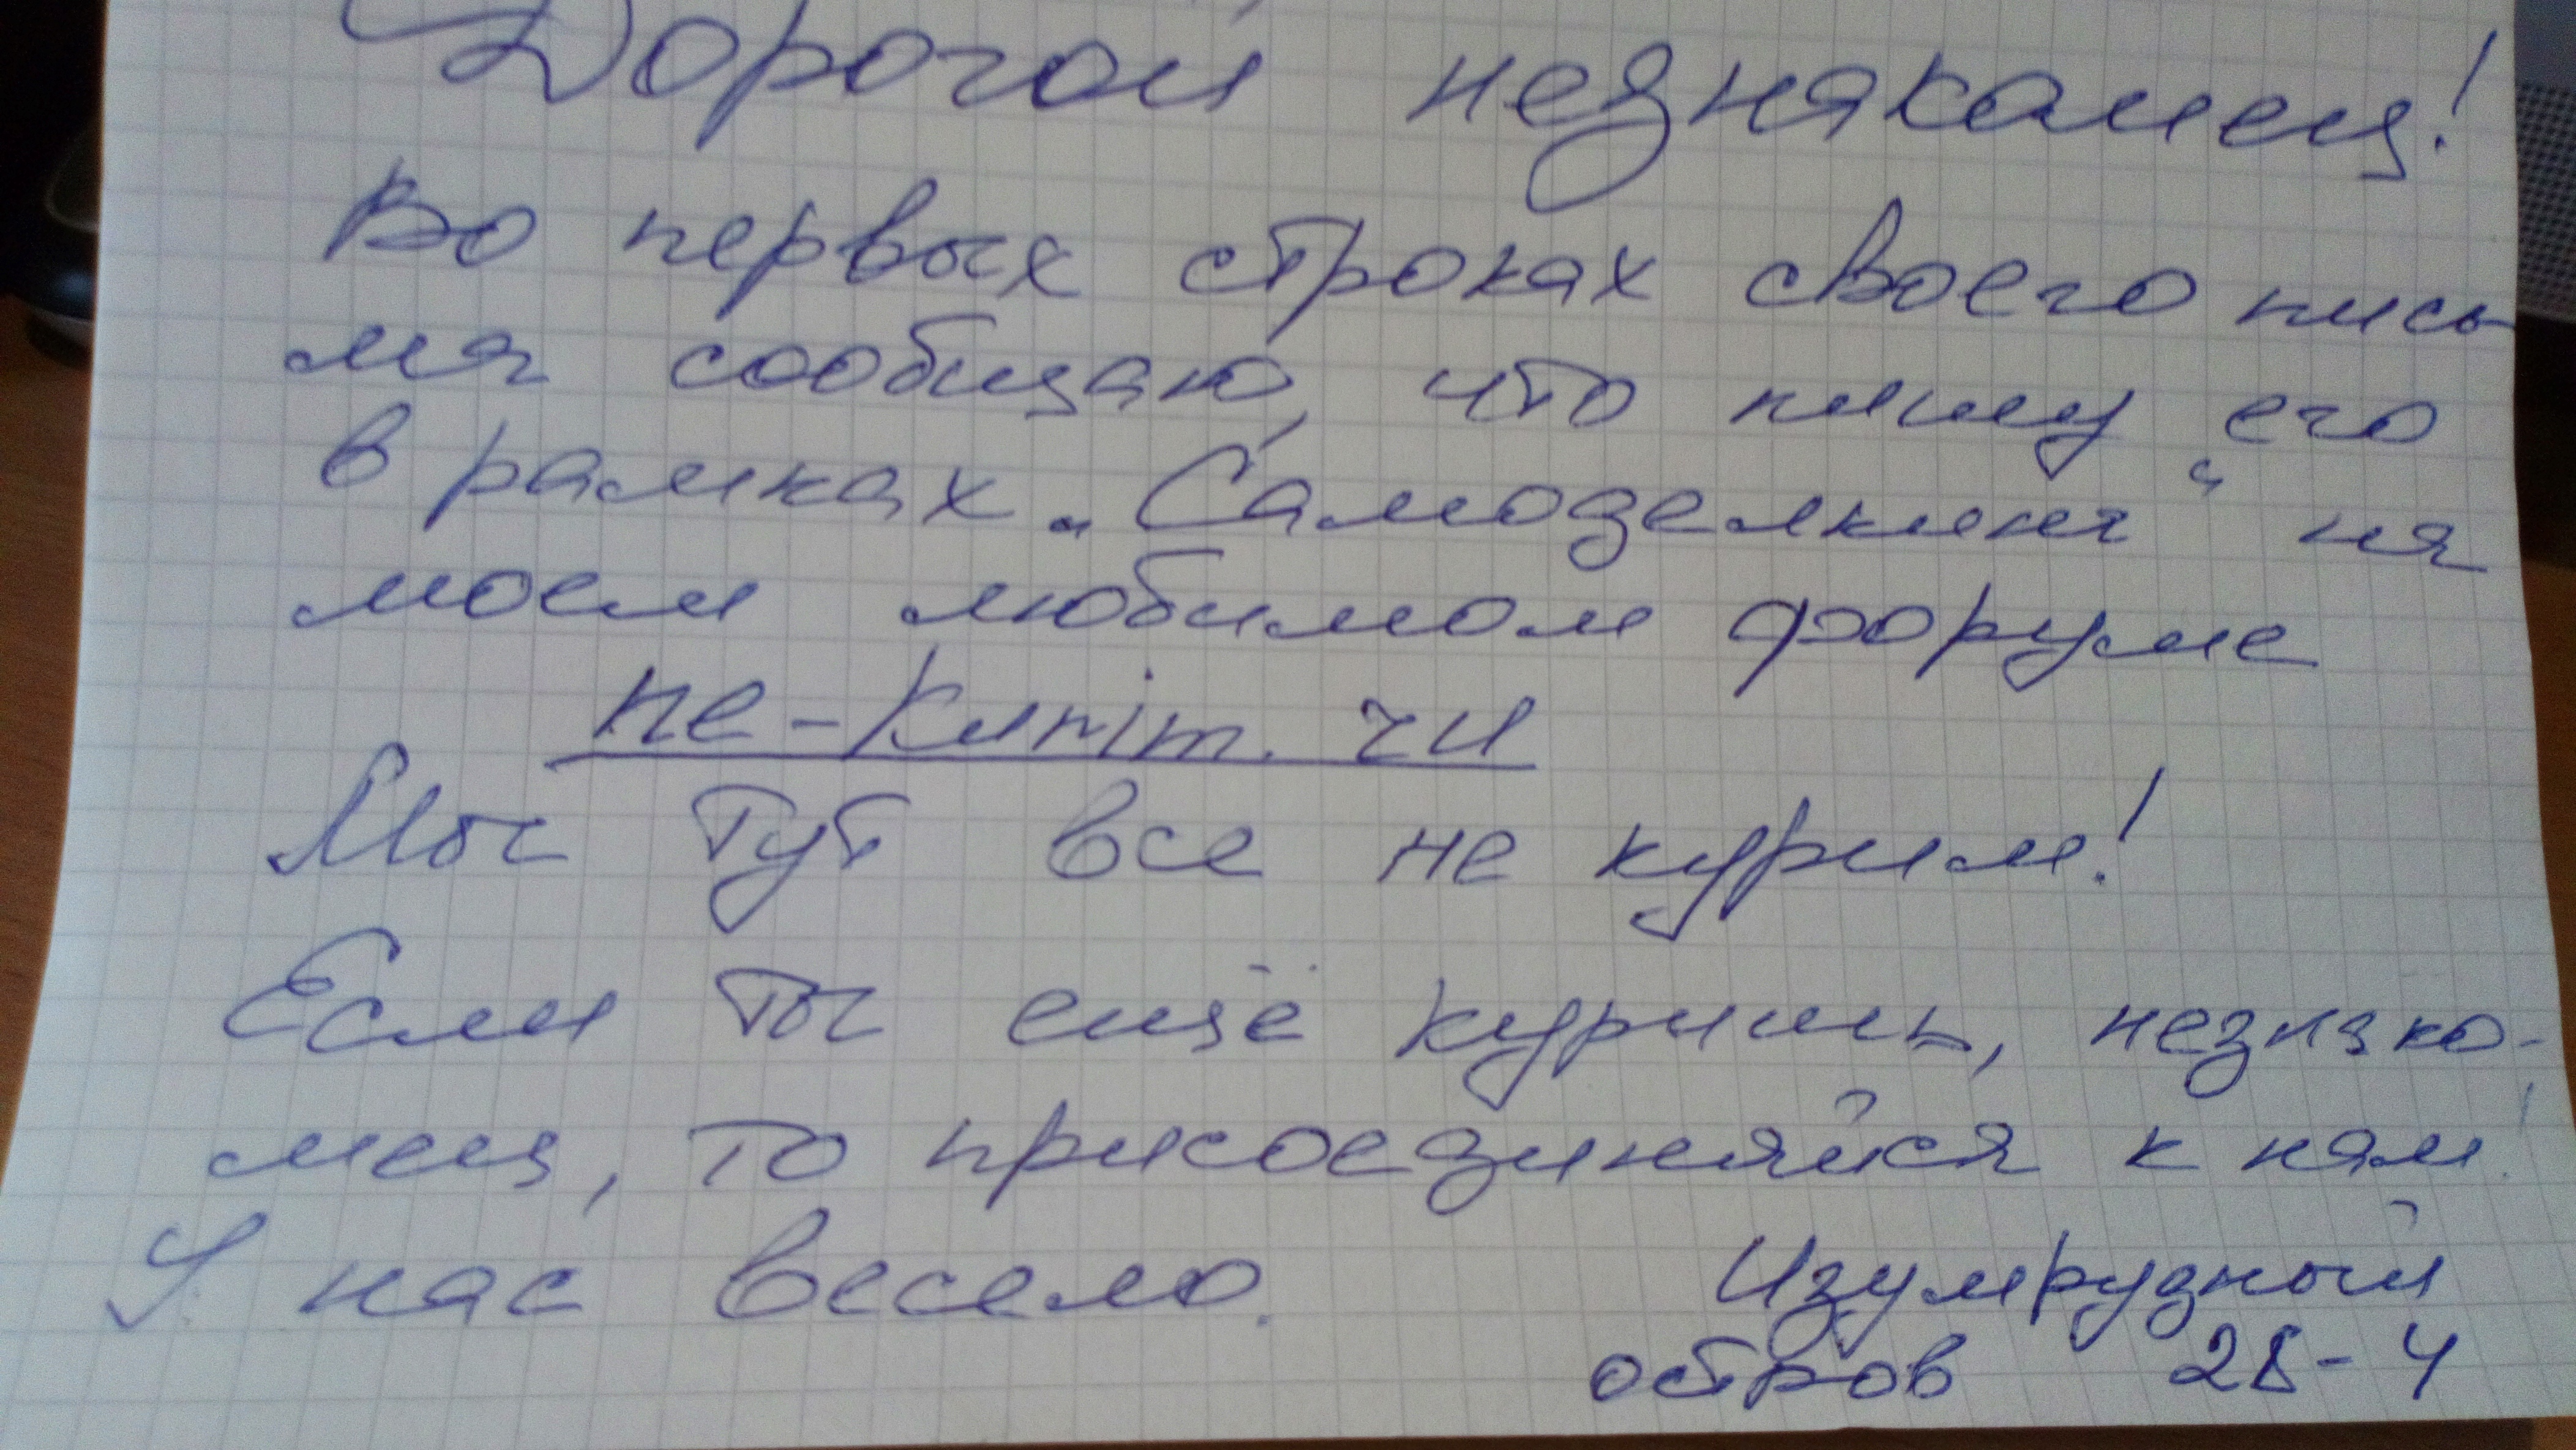 Дорогой незнакамец!
Во первых строках своего пись
ма сообщаю, что пишу его
в рамках „Самоделкина“ на
моем любимом форуме
Мы тут все не курим!
Если ты ещё куришь, незнако-
мец, то присоединяйся к нам!
У нас весело. Изумрудный
остров 28-4